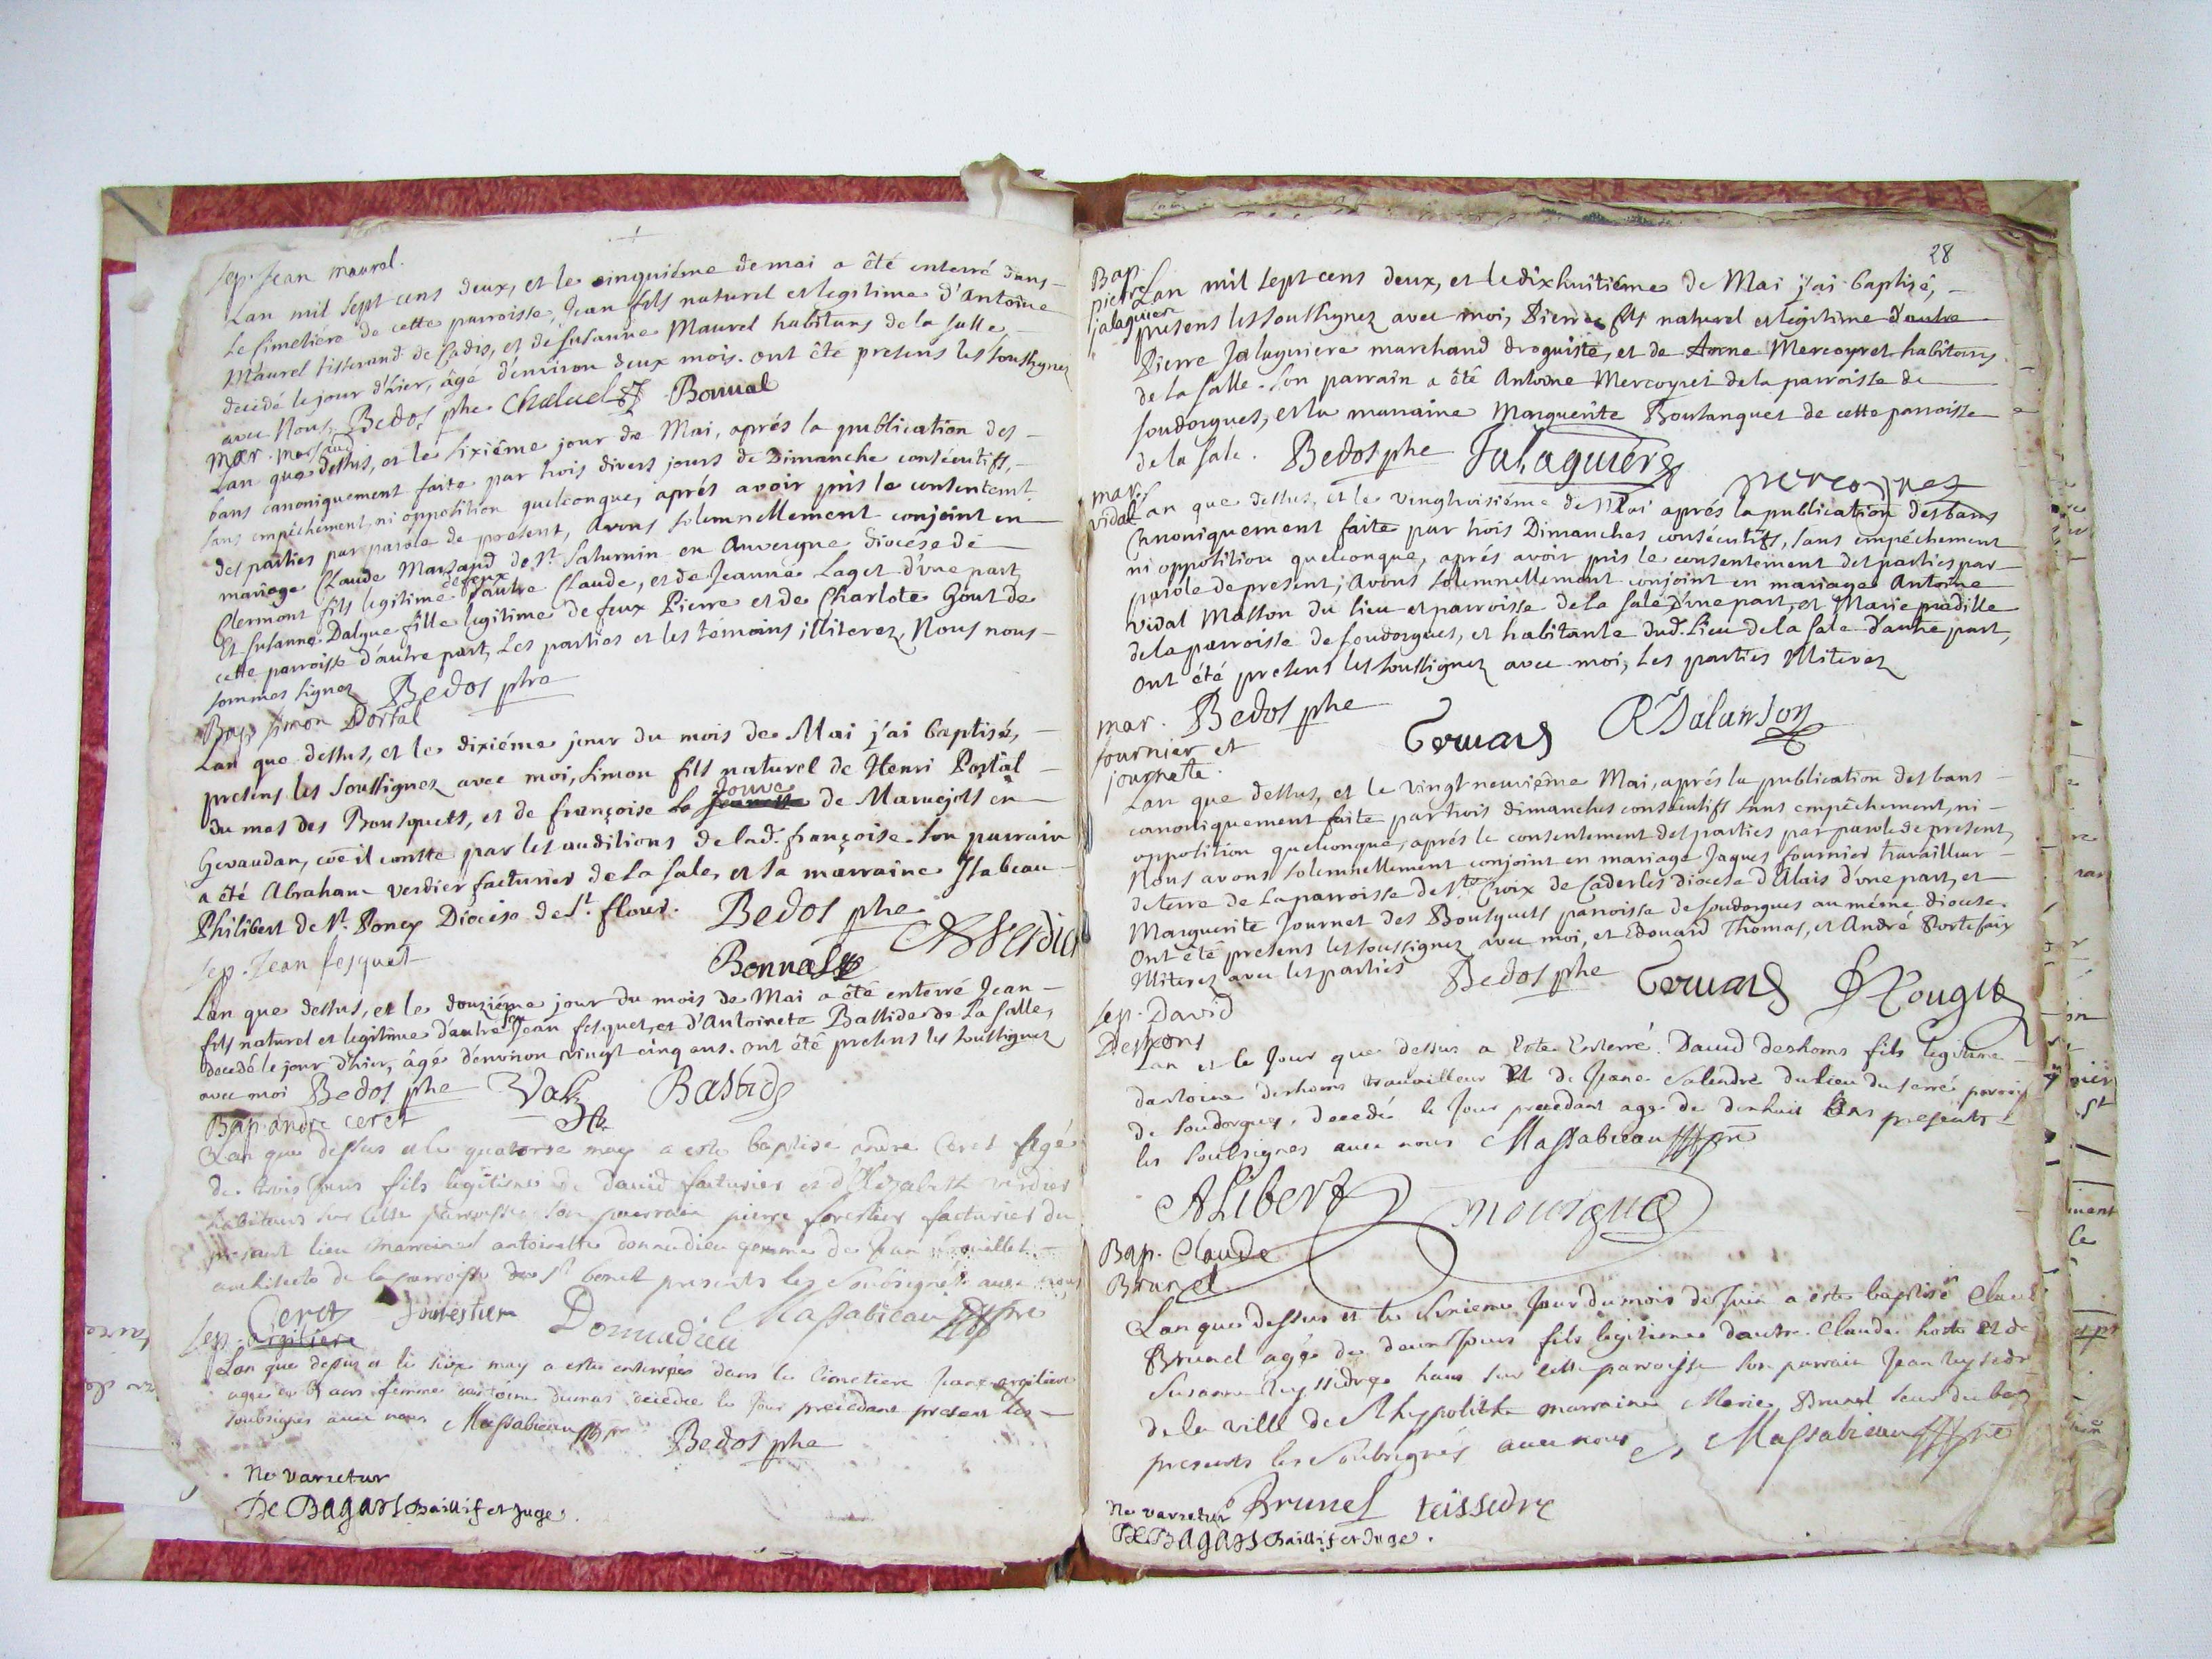 Sep. Jean Maurel.
Lan mil sept cens deux, et le cinquiéme de mai a êté enterré dans
Le simetière de cette parroisse, Jean fils naturel et legitime d'Antoine
Maurel tisserand de Cadis, et de Susanne Maurel habitans de la salle,
decedé le jour d'hier, âgé d'environ deux mois. ont êté presens les soussignez
avec Nous, Bedos phe Bonnal
Mar.
Lan que dessus, et le sixiéme jour de Mai, aprés la publication des
bans canoniquement faite par trois divers jours de Dimanche consécutifs,
sans empêchement, ni opposition quelconque, aprés avoir pris le consentemt.
des parties par parole de présent, avons solemnellement conjoint en
mariage Claude Marsand de St. Saturnin en Auvergne diocése de
Clermont fils legitime de feux d'autre Claude, et de Jeanne Laget d'vne part,
Et Susanne Dalgue fille legitime de feux Pierre et de Charlote Gout de
cette parroisse d'autre part, Les parties et les témoins illiterez, Nous nous
sommes signez Bedos phe
Bap. Simon Portal
Lan que dessus, et le dixiéme jour du mois de Mai j'ai baptisé,
presens les soussignez avec moi, Simon fils naturel de Henri Portal
du mas des Bousquets, et de françoise La Jouve de Maruejols en
Gevaudan, coe il conste par les auditions de lad. françoise. Son parrain
a êté Abraham Verdier facturier de La sale, et sa marraine Isabeau
Philibert de St. Poncy Diocése de St. flour. Bedos phe
Verdier
Bonnal
Sep. Jean fesquet
Lan que dessus, et le douziéme jour du mois de Mai a êté enterré Jean
fils naturel et legitime d'autre Jean fesquet, et d'Antoinete Bastide de La salle,
decedé le jour d'hier, âgé d'environ vingt cinq ans. ont êté presens les soussignez
avec moi Bedos phe Valz Bastide
Bap. andré ceret
Lan que dessus et le quatorse may a este baptisé andre Ceret agé
de trois jours fils legitime de david facturier et d'Elizabeth verdier
habitans sur cette parroisse son parrain pierre forestier facturier du
present lieu marraine antoinette donnadieu femme de Jean
architecte de la parroisse de St bonet presents les soubsignés avec nous
Ceret forestier Donnadieu Massabieau ptre
Sep. argiliere
Lan que dessus et le may a este enterrée dans le cimetiere Jeane argiliere
agee de ans femme dantoine dumas decedee le jour precedant present les
soubsignes avec nous Massabieau ptre Bedos phe
Ne varietur
De Bagars Baillif et Juge.
28
Bap.
pierre
jalaguiere
Lan mil sept cens deux, et le dixhuitiéme de Mai j'ai baptizé,
presens les soussignez avec moi, Pierre fils naturel et legitime d'autre
Pierre Jalaguiere marchand droguiste, et de Anne Mercoyret habitans
de la salle. Son parrain a êté Antoine Mercoyret de la parroisse de
soudorgues, et la marraine Marguerite Boulanguet de cette parroisse
de la sale. Bedos phe Jalaguiere
mercoyret
mar.
vidal
Lan que dessus, et le vingtroisiéme de Mai aprés la publication des bans
Canoniquement faite par trois Dimanches consécutifs, sans empêchement
ni opposition quelconque, aprés avoir pris le consentement des parties par
parole de present; Avons solemnellement conjoint en mariage Antoine
Vidal Masson du lieu et parroisse de La sale d'vne part, et Marie pradille
de la parroisse de soudorgues, et habitante dud. lieu de la sale d'autre part,
Ont été presens les soussignez avec moi, Les parties illiterez
Bedos phe Gervais R Dalanson
mar.
fournier et
journete.
Lan que dessus, et le vingt neuviéme Mai, aprés la publication des bans
canoniquement faite par trois dimanches consécutifs sans empêchement, ni
opposition quelconque, aprés le consentement des parties par parole de present,
Nous avons solemnellement conjoint en mariage Jaques fournier travailleur
de terre de La parroisse de Ste Croix de Caderles diocese d'Alais d'vne part, et
Marguerite Journet des Bousquets parroisse de soudorgues au même diocese.
Ont êté presens les soussignez avec moi, et Edouard Thomas, et André Portefaix
illiterez avec les parties Bedos phe Gervais
Sep. David
Deshons
Lan et le Jour que dessus a este enterré David deshons fils legitime
dantoine deshons travailleur et de Jeane Salendre du lieu du serre parroisse
de soudorgues, decedé le Jour precedant age de ans presents
les soubsignes avec nous Massabieau ptre
ALibert mourgue
Bap. Claude
Brunel
Lan que dessus et le Jour du mois de Juin a este baptisé Claude
Brunel agé de deux Jours fils legitime dautre Claude hoste et de
Susanne teyssedre hans sur cette parroisse son parrain Jean teyssedre
de la ville de St hypolithe marraine Marie Brunel
presents les soubsignés avec nous Massabieau ptre
Brunel teissedre
Ne varietur
De Bagars Baillif et Juge.